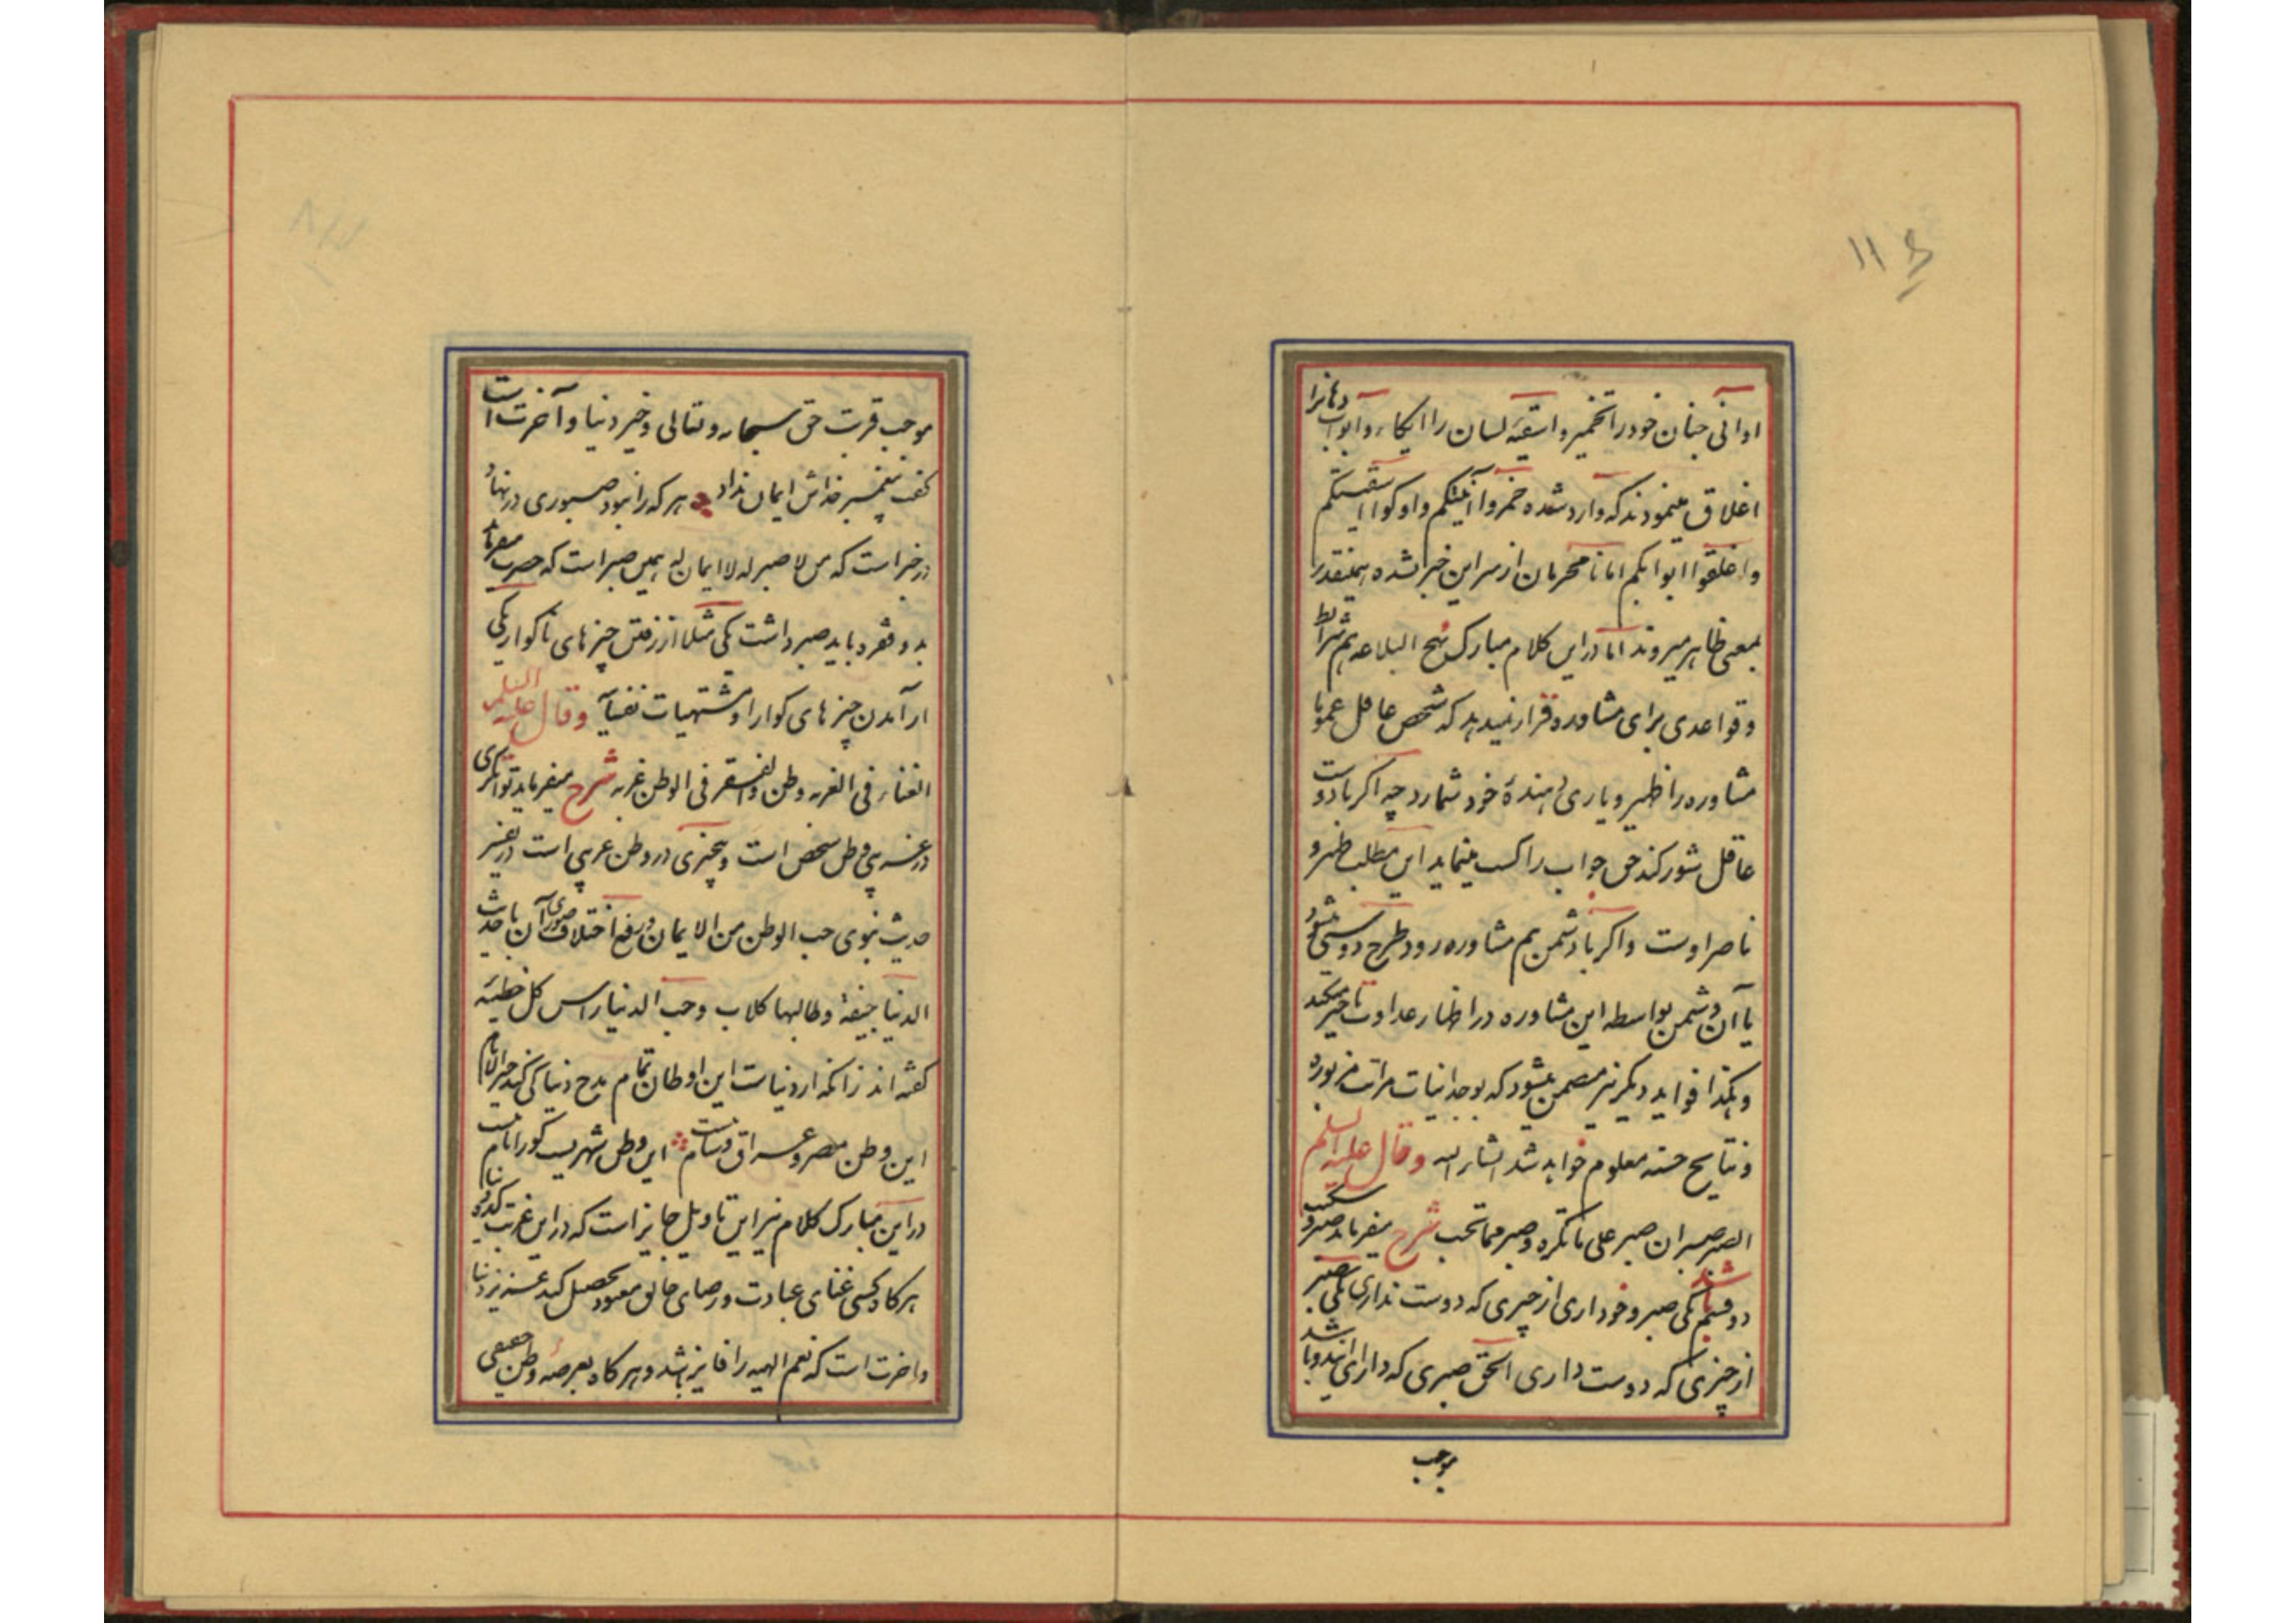 ۱۱
اوانی جنان خود را تخمیر و اسقیهٔ لسان را ایکاء و ابواب دهانرا
اغلاق مینمودند که وارد شده خمروا آنیتکم و اوکوا اسقیتکم
واغلقوا ابوابکم اما نامحرمان از سر این خبر نشده بهمینقدر
بمعنی ظاهر میروند اما در این کلام مبارک نهج البلاغه هم شرایط
و قواعدی برای مشاوره قرار نمیدهد که شخص عاقل عموما
مشاوره را ظهیر و یاری دهندهٔ خود شمارد چه اکر با دوست
عاقل شور کند حق جواب را کسب مینماید این مطلب ظهیر و
ناصر اوست و اکر با دشمن هم مشاوره رود طرح دوستی میشود
یا آن دشمن بواسطه این مشاوره در اظهار عداوت تاخیر میکند
و هکذا فواید دیکر نیز متضمن میشود که بوجدانیات مراتب مزبوره
و نتایج حسنه معلوم خواهد شد انشاء الله وقال علیه السلم
الصبر صبران صبر علی ما تکره و صبر مما تحب شرح میفرماید صبر و
دو قسم باشد یکی صبر و خودداری از چیزی که دوست نداری یکی صبر
از چیزی که دوست داری الحق صبری که دارای اینها باشد
موجب
موجب قربت حق سبحانه و تعالی و خیر دنیا و آخرت است
گفت پیغمبر خداش ایمان نداد هر که را نبود صبوری در نهاد
در خبر است که من لا صبر له لا ایمان له همین صبر است که حضرت میفرماید
بدو قسم باید صبر داشت یکی مثلا از رفتن چیزهای ناکوار یکی
از آمدن چیزهای کوارا و مشتهیات نفسیا وقال علیه السلم
الغناء فی الغربه وطن والفقر فی الوطن غربه شرح میفرماید توانکری
در غریبی وطن شخص است و بیچیزی در وطن غریبی است در تفسیر
حدیث نبوی حب الوطن من الایمان و رفع اختلاف صوری آن با حدیث
الدنیا جیفة وطالبها کلاب وحب الدنیا راس کل خطیئه
کفته اند زانکه از دنیاست این اوطان تمام مدح دنیا کی کند خیر الانام
این وطن مصر و عراق و شام نیست این وطن شهریست کورا نام نیست
در این مبارک کلام نیز این تاویل جایز است که در این غربت کده دنیا
هرکاه کسی غنای عبادت و رضای خالق معبود تحصیل کند عزیز دنیا
و اخرت است که نعم الهیه را فایز باشد و هرکاه بعرصهٔ وطن حقیقی